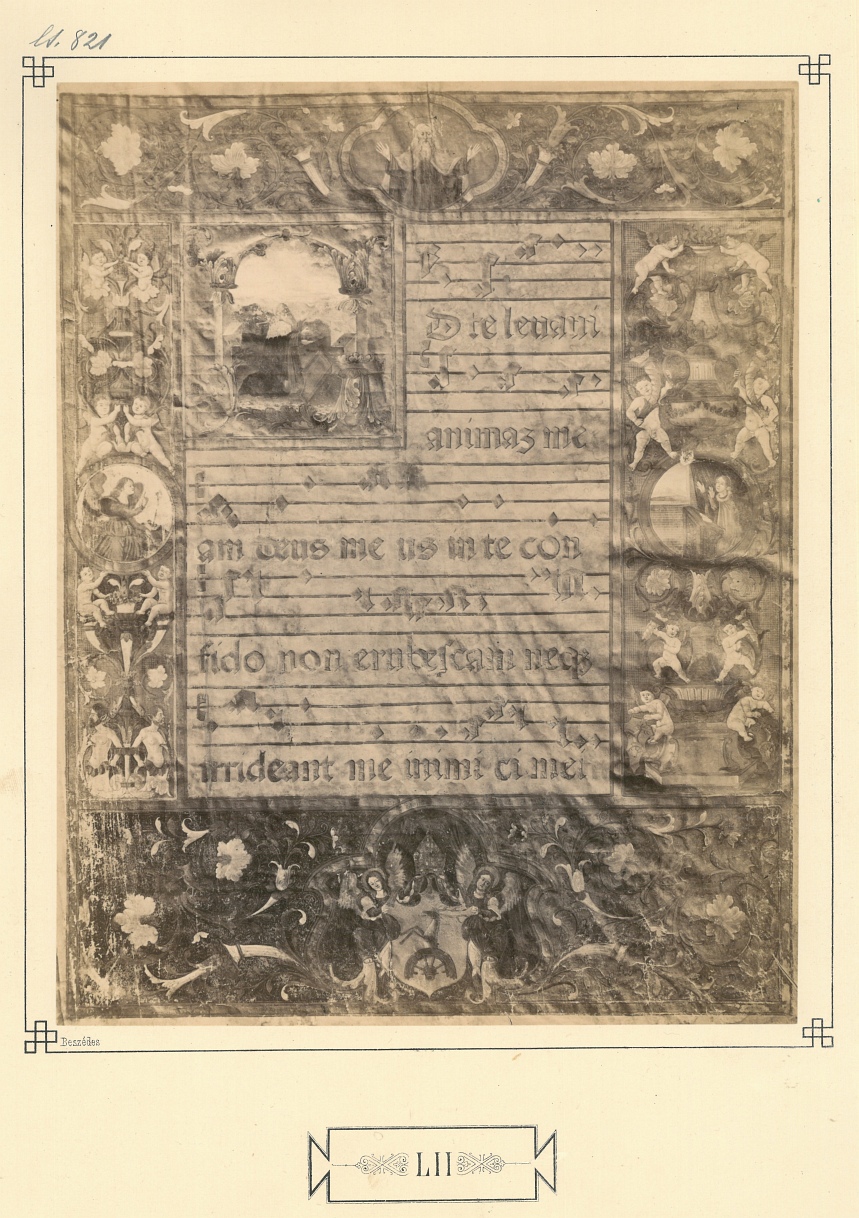 lt. 821
D te leuaui
animaz me
am deus me us in te con
fido non erubescam neqz
irrideant me inimi ci mei
Beszédes
LII